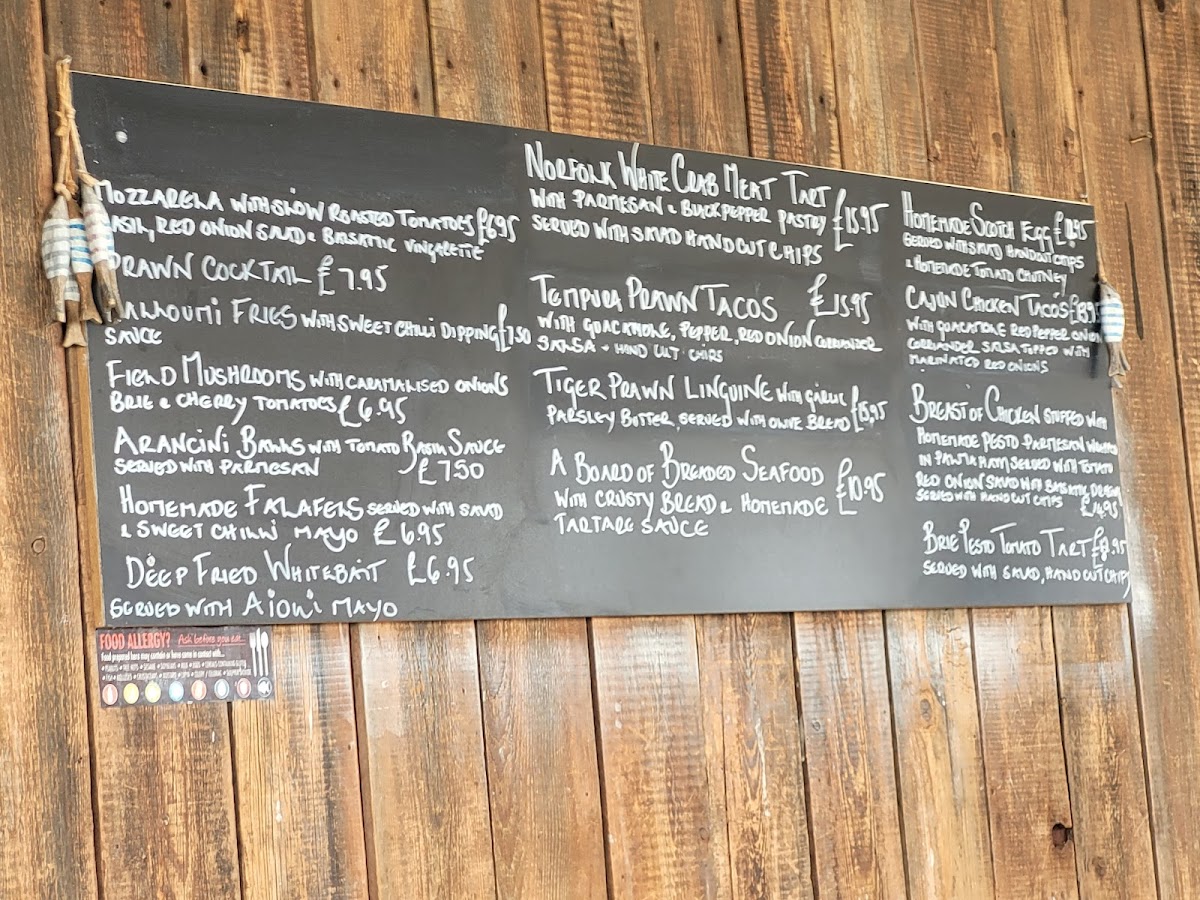 MOZZARELLA WITH SLOW ROASTED TOMATOES £6.95
BASIL, RED ONION SALAD & BALSATIC VINGALETTE
PRAWN COCKTAIL £7.95
HALLOUMI FRIES WITH SWEET CHILLI DIPPING £7.50
SAUCE
FIELD MUSHROOMS WITH CARAMALISED ONIONS
BRIE & CHERRY TOMATOES £6.95
ARANCINI BALLS WITH TOMATO BASIL SAUCE
SERVED WITH PARMESAN £7.50
HOMEMADE FALAFELS SERVED WITH SALAD
& SWEET CHILLI MAYO £6.95
DEEP FRIED WHITEBAIT £6.95
SERVED WITH AIOLI MAYO
NORFOLK WHITE CRAB MEAT TART
WITH PARMESAN & BLACK PEPPER PASTRY £15.95
SERVED WITH SALAD HAND CUT CHIPS
TEMPURA PRAWN TACOS £15.95
WITH GUACAMOLE, PEPPER, RED ONION CORRIANDER
SALSA + HAND CUT CHIPS
TIGER PRAWN LINGUINE WITH GARLIC
PARSLEY BUTTER, SERVED WITH OLIVE BREAD £15.95
A BOARD OF BREADED SEAFOOD
WITH CRUSTY BREAD & HOMEMADE £10.95
TARTARE SAUCE
HOMEMADE SCOTCH EGG
SERVED WITH SALAD HANDCUT CHIPS
& HOMEMADE TOMATO CHUTNEY
CAJUN CHICKEN TACOS
WITH GUACAMOLE RED PEPPER ONION
CORRIANDER SALSA TOPPED WITH
MARINATED RED ONIONS
BREAST OF CHICKEN STUFFED WITH
HOMEMADE PESTO PARMESAN WRAPPED
IN PALMA HAM SERVED WITH TOMATO
RED ONION SALAD WITH BALSATIC
SERVED WITH HAND CUT CHIPS £14.95
BRIE PESTO TOMATO TART
SERVED WITH SALAD, HAND CUT CHIPS
FOOD ALLERGY? Ask before you eat...
Food prepared here may contain or have come in contact with...